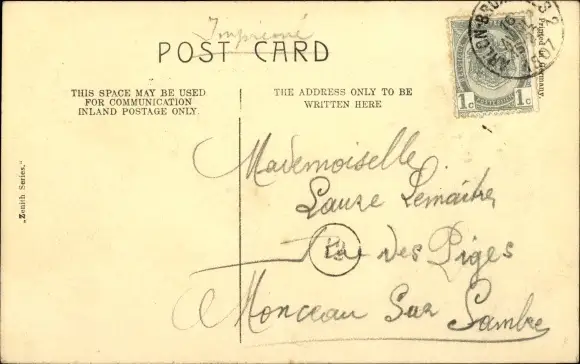 Imprimé
POST CARD
THIS SPACE MAY BE USED
FOR COMMUNICATION
INLAND POSTAGE ONLY.
THE ADDRESS ONLY TO BE
WRITTEN HERE
1c 1c
Printed in Germany.
"Zenith Series."
Mademoiselle
Laure Lemaitre
Rue des Piges
Monceau Sur
Sambre